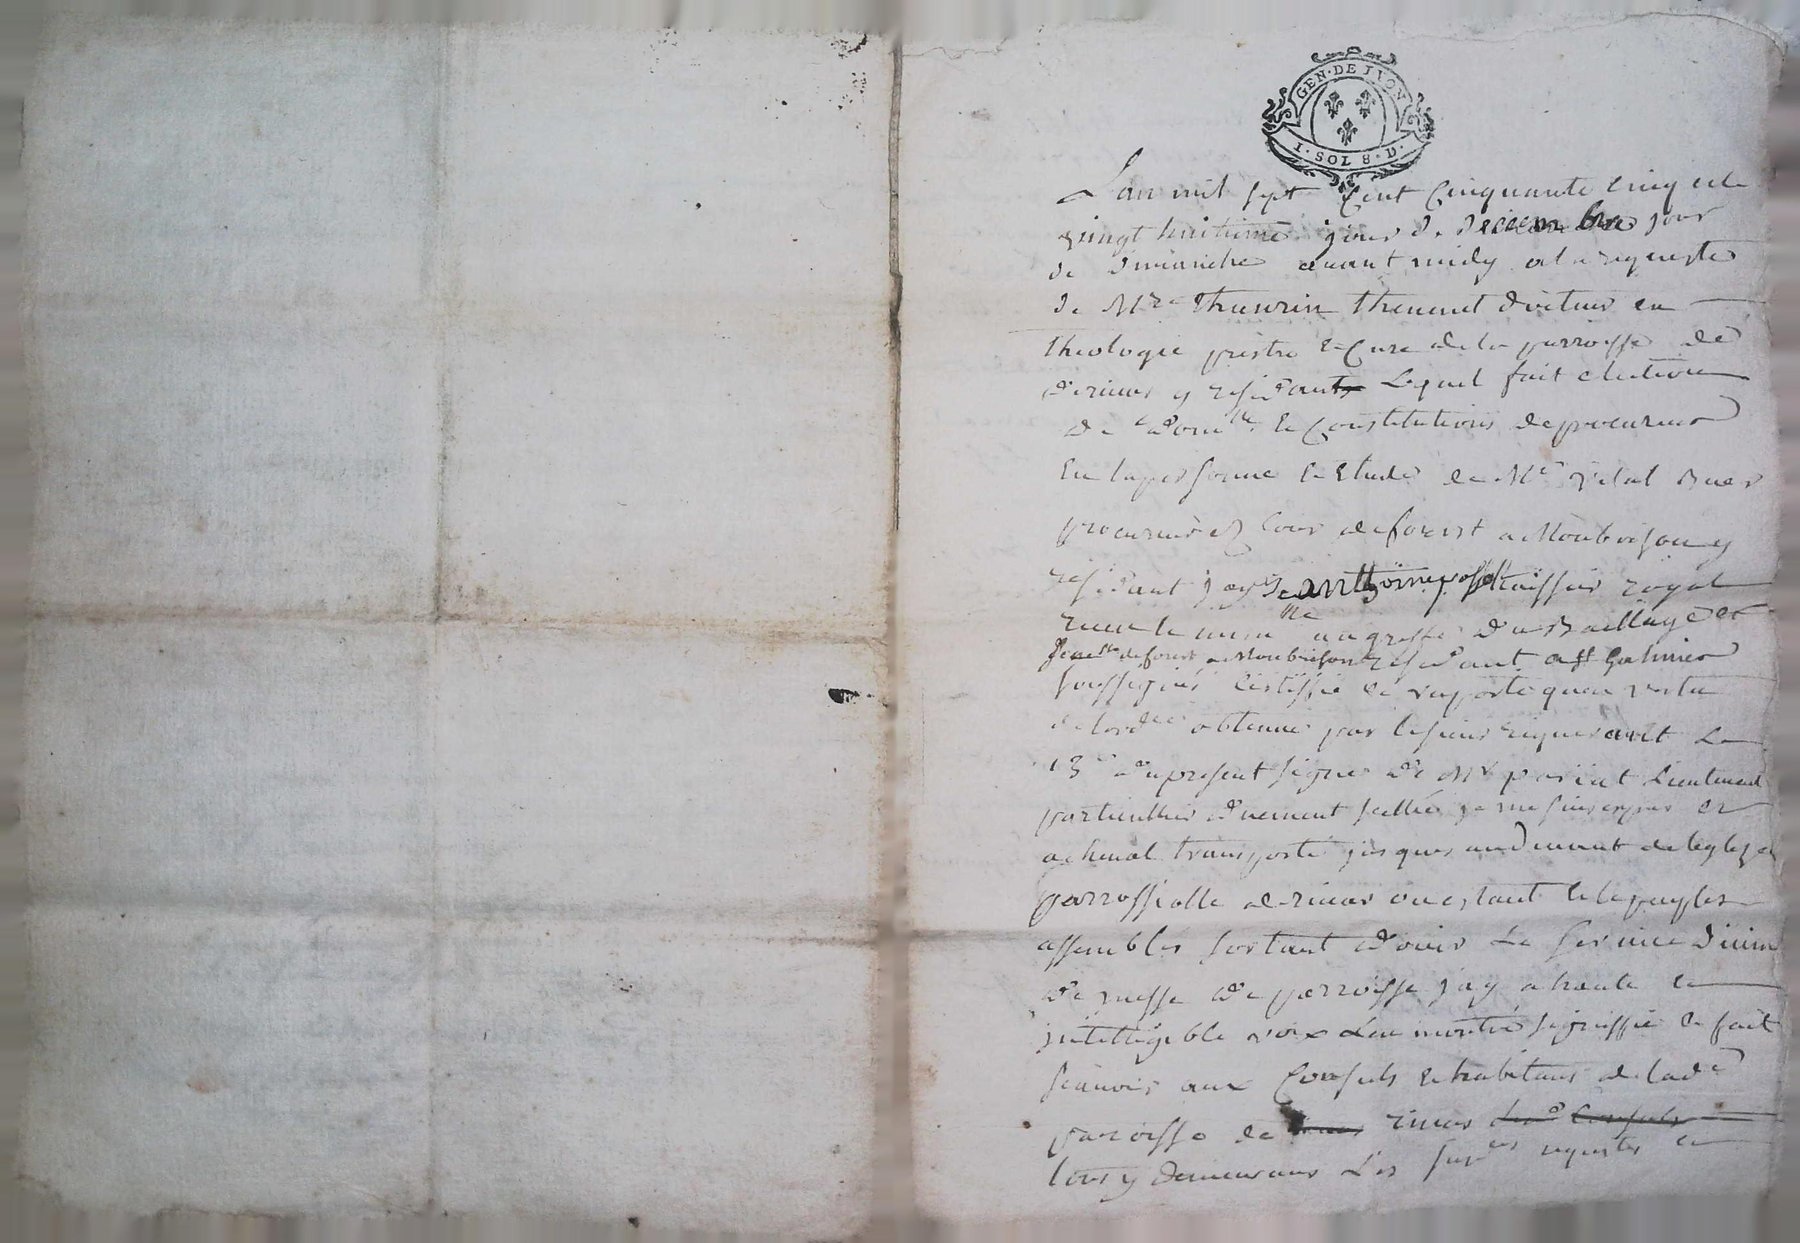 GEN·DE LYON
1·SOL 8·D·
L'an mil sept cent cinquante cinq et le
vingt huitieme jour de decembre jour
de dimanche avant midy a la requeste
de Mre Thenevet docteur en
Theologie prestre & curé de la parroisse de
rivas y residant lequel fait election
de dom.lle & constitution de procureur
en la personne & etude de Me Vital
procureur es cour de forest a Montbrison y
residant jay anthoine huissier royal
receu & imm.lle au greffe du Bailliage et
Sene.ssée de forest a Montbrison residant a st Galmier
soussigné certiffie & rapporte quen vertu
de lord.ce obtenue par le sieur requerant le
13e du present signé de Mr lieutenant
particullier duement scellé je me suis expres &
a cheval transporté jusques au devant de leglize
parrossialle de rivas ou estant & le peuple
assemblés sortant d'ouir le service divin
de messe de parroisse jay a haute &
intelligible voix leu montré signiffié & fait
sçavoir aux consuls & habitans de lad.e
paroisse de rivas
tous y demeurans les sus.des requeste &